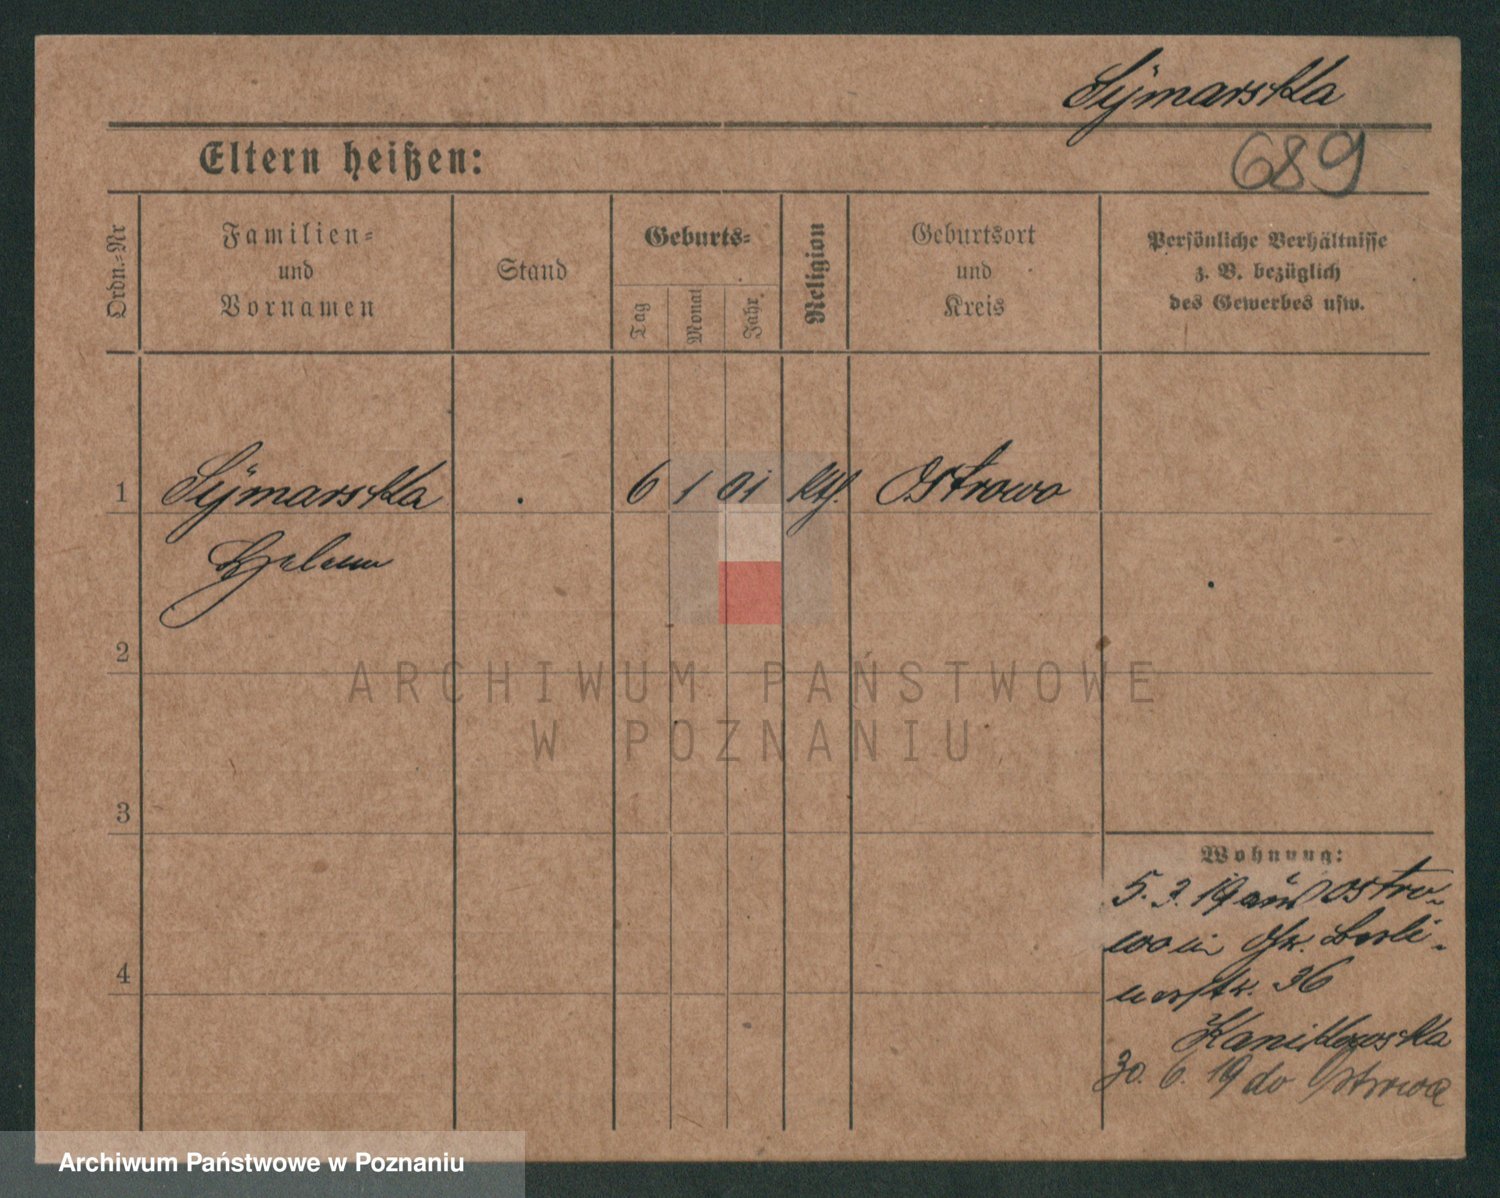 Symarska
689
Eltern heißen:
Ordn.-Nr
Familien-
und
Vornamen
Stand
Geburts-
Tag
Monat
Jahr
Religion
Geburtsort
und
Kreis
Persönliche Verhältnisse
z. B. bezüglich
des Gewerbes usw.
1 Symarska . 6 1 01 Kth. Ostrowo
Helene
2
3
4
Wohnung:
5. 3. 19 aus Ostro-
wo in Berli-
nerstr. 36
30. 6. 19 do Ostrowa
ARCHIWUM PAŃSTWOWE
W POZNANIU
Archiwum Państwowe w Poznaniu